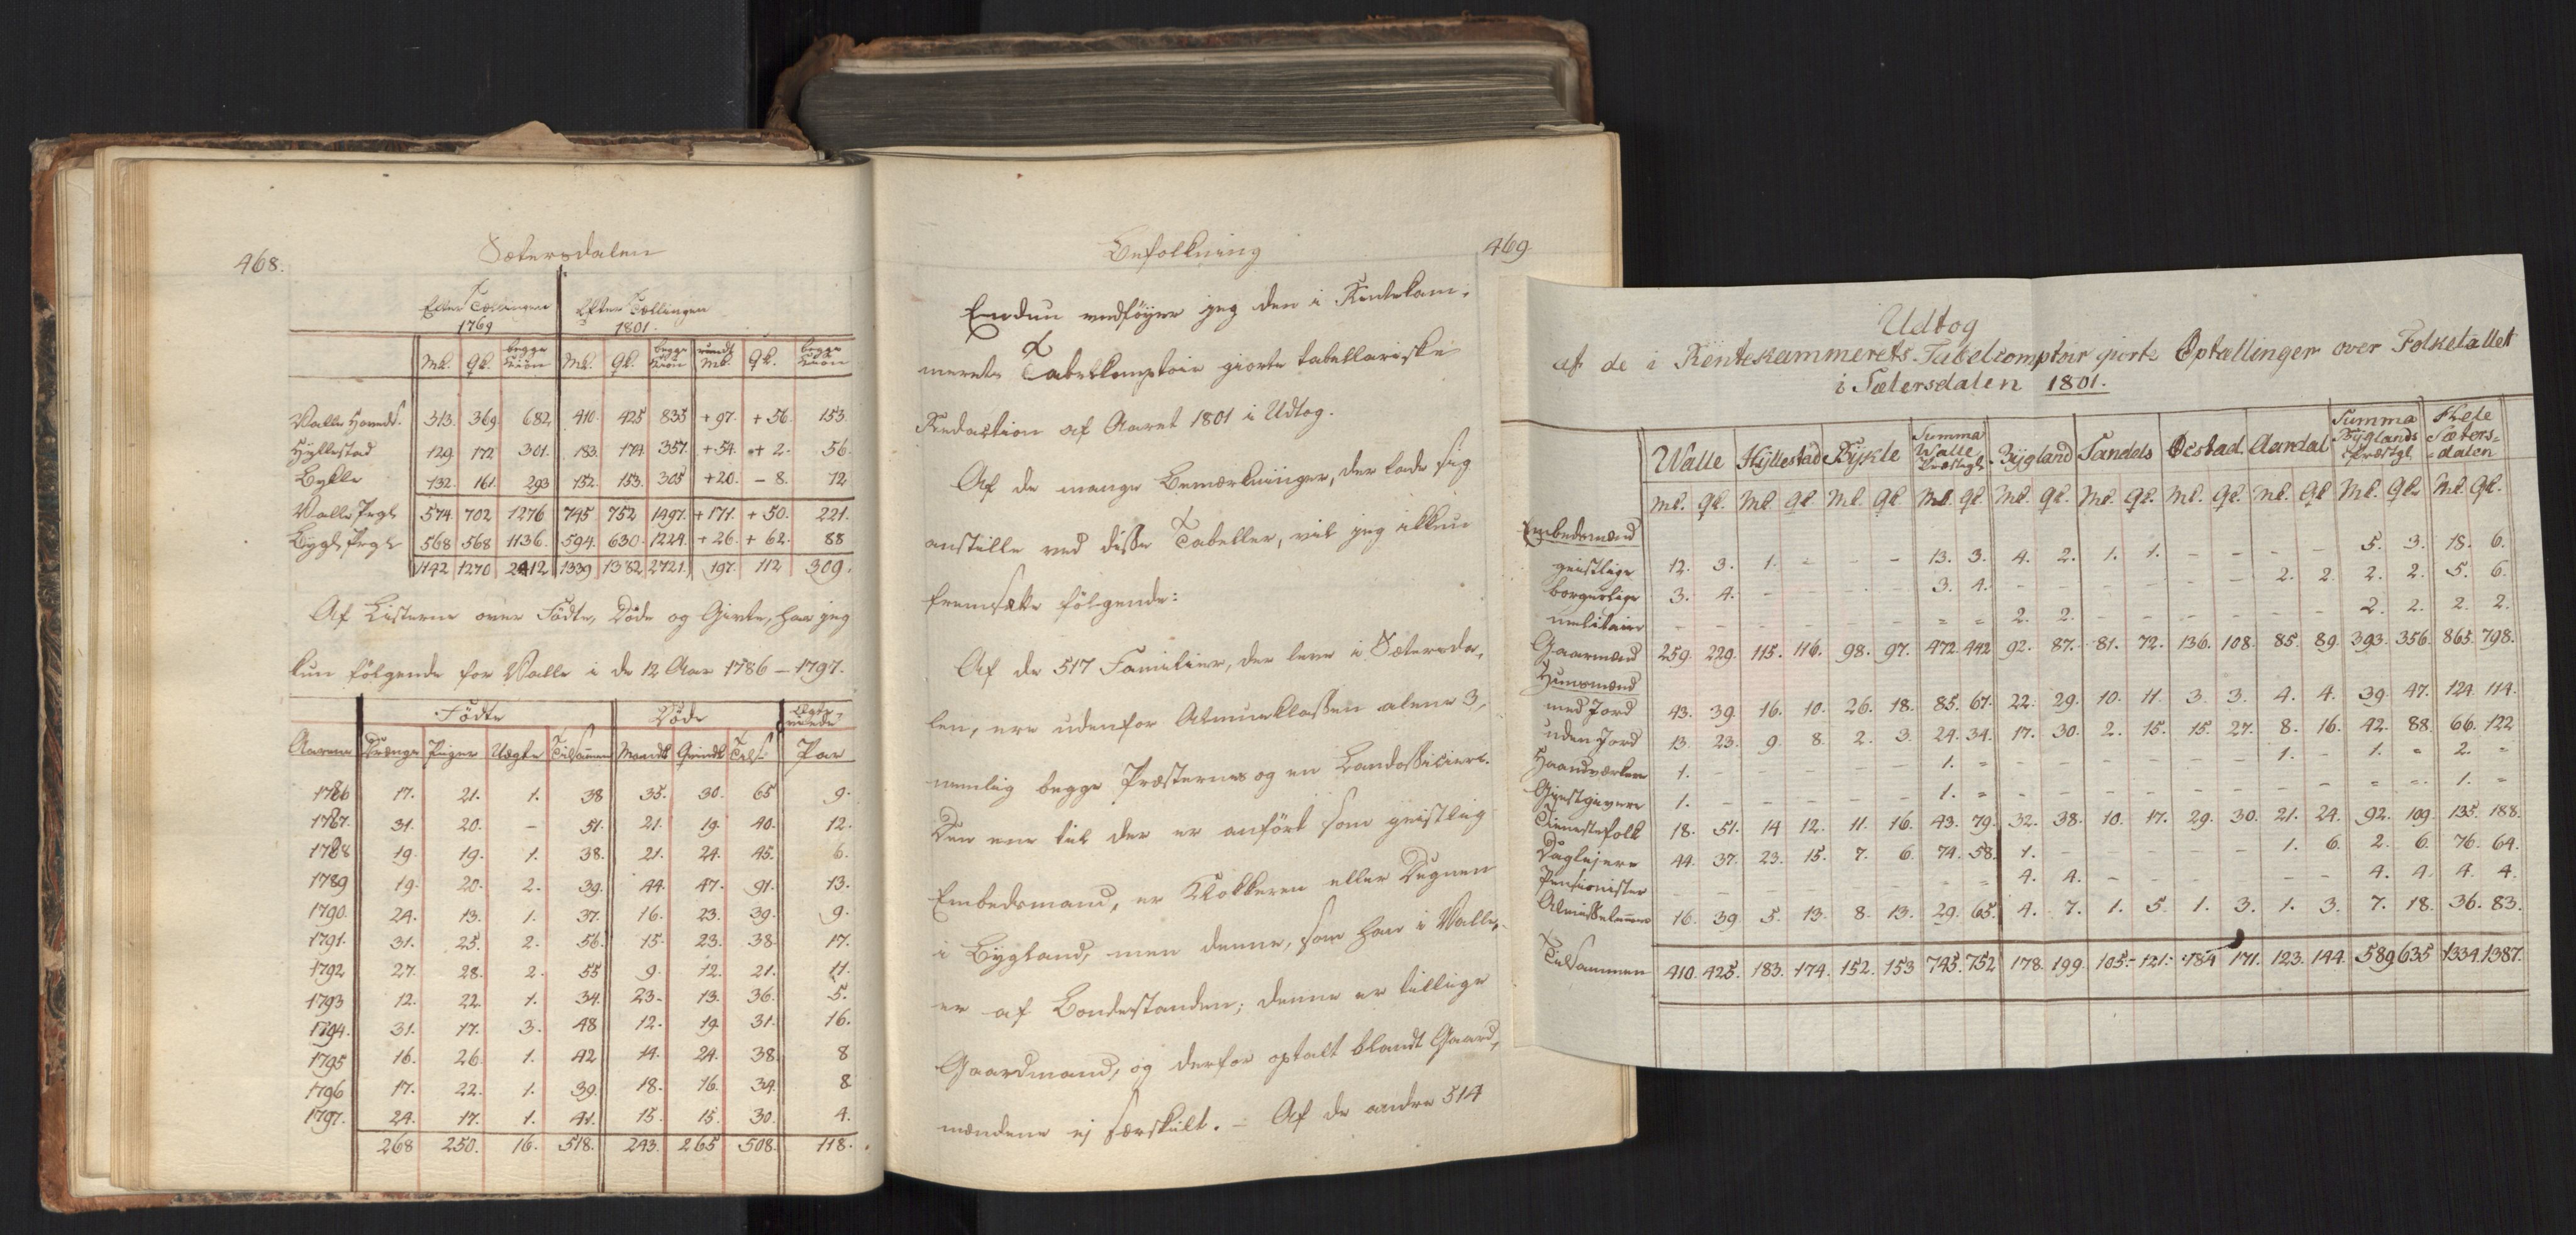 468.
Sætersdalen
Efter Tællingen 1769 | Efter Tællingen 1801.
Mk. | Qk. | begge Kiön | Mk. | Qk. | begge Kiön | Mk. | Qk. | begge Kiön
Valle Hoveds. | 313. | 369. | 682 | 410. | 425 | 835 | +97. | +56. | 153.
Hyllestad | 129. | 172 | 301. | 183. | 174. | 357. | +54. | + 2. | 56.
Bykle | 132. | 161. | 293 | 152. | 153. | 305 | +20. | - 8. | 12
Valle Prgl | 574. | 702 | 1276 | 745 | 752 | 1497. | +171. | + 50. | 221.
Bygl. Prgl | 568 | 568 | 1136. | 594. | 630. | 1224. | + 26. | + 62. | 88
1142 | 1270 | 2412 | 1339 | 1382 | 2721. | 197. | 112 | 309.
Af Listerne over Födte, Döde og Givte, har jeg
kun følgende for Valle i de 12 Aar 1786 – 1797.
Födte | Döde | Ægte
Aarene | Drænge | Piger | Uægte | Tilsammen | Mandk | Qvindk | Tils. | Par
1786 | 17. | 21. | 1. | 38 | 35. | 30. | 65 | 9.
1787. | 31. | 20. | – | 51. | 21. | 19. | 40. | 12.
1788 | 19. | 19. | 1. | 38. | 21. | 24. | 45. | 6.
1789 | 19. | 20. | 2. | 39. | 44. | 47. | 91. | 13.
1790. | 24. | 13. | 1. | 37. | 16. | 23. | 39. | 9.
1791. | 31. | 25. | 2. | 56. | 15. | 23. | 38. | 17.
1792 | 27. | 28. | 2. | 55 | 9. | 12. | 21. | 11.
1793 | 12. | 22. | 1. | 34. | 23. | 13. | 36. | 5.
1794. | 31. | 17. | 3. | 48 | 12. | 19. | 31. | 16.
1795 | 16. | 26. | 1. | 42 | 14. | 24. | 38. | 8
1796 | 17. | 22. | 1. | 39. | 18. | 16. | 34. | 8
1797. | 24. | 17. | 1. | 41. | 15. | 15. | 30. | 4.
268 | 250. | 16. | 518. | 243. | 265 | 508. | 118.
Befolkning
469
Endnu vedföyer jeg den i Rentekam-
merets Tabelkomptoir giorte tabellariske
Redaction af Aaret 1801 i Udtog.
Af de mange Bemærkninger, der lade sig
anstille ved disse Tabeller, vil jeg ikkun
fremsætte fölgende:
Af de 517 Familier, der leve i Sætersda-
len, ere udenfor Almueklassen alene 3,
nemlig begge Præsterne og en Landofficier.
Den ene til der er anfört som geistlig
Embedsmand, er Klokkeren eller Degnen
i Bygland, men denne, som han i Valle,
er af Bondestanden; denne er tillige
Gaardmand, og derfor optalt blandt Gaard-
mændene ej særskilt. – Af de andre 514
Udtog
af de i Rentekammerets Tabelcomptoir giorte Optællinger over Folketallet
i Sætersdalen 1801.
Walle | Hyllestad | Bykle | Summa Walle Præstegl | Bygland | Sandels | Østad | Aardal | Summa Byglands Præstgl | Hele Sæters-dalen
Mk. Qk. | Mk Qk | Mk. Qk | Mk. Qk. | Mk. Qk. | Mk. Qk. | Mk. Qk. | Mk. Qk | Mk. Qk. | Mk. Qk.
Embedsmænd
geistlige | 12. 3. | 1. - | - - | 13. 3. | 4. 2. | 1. 1. | - - | - - | 5. 3. | 18. 6.
borgerlige | 3. 4. | - - | - - | 3. 4. | - - | - - | - - | 2. 2. | 2. 2. | 5. 6.
militaire | - - | - - | - - | - - | 2. 2. | - - | - - | - - | 2. 2. | 2. 2.
Gaarmænd | 259. 229. | 115. 116. | 98. 97. | 472. 442 | 92. 87. | 81. 72. | 136. 108. | 85. 89. | 393. 356. | 865. 798.
Huusmænd
med Jord | 43. 39. | 16. 10. | 26. 18. | 85. 67. | 22. 29. | 10. 11. | 3. 3. | 4. 4. | 39. 47. | 124. 114.
uden Jord | 13. 23. | 9. 8. | 2. 3. | 24. 34. | 17. 30. | 2. 15. | 15. 27. | 8. 16. | 42. 88. | 66. 122
Haandværkere | 1. - | - - | - - | 1. - | - - | - - | - - | 1. - | 1. - | 2. -
Giestgivere | 1. - | - - | - - | 1. - | - - | - - | - - | - - | - - | 1. -
Tienestefolk | 18. 51. | 14 12. | 11. 16. | 43. 79. | 32. 38. | 10. 17. | 29. 30. | 21. 24. | 92. 109. | 135. 188.
Daglejere | 44. 37. | 23. 15. | 7. 6. | 74. 58. | 1. - | - - | - - | 1. 6. | 2. 6. | 76. 64.
Pensionister | - - | - - | - - | - - | 4. 4. | - - | - - | - - | 4. 4. | 4. 4.
Almisselemmer | 16. 39. | 5. 13. | 8. 13. | 29. 65. | 4. 7. | 1. 5. | 1. 3. | 1. 3. | 7. 18. | 36. 83.
Tilsammen | 410. 425. | 183. 174. | 152. 153 | 745. 752 | 178. 199. | 105. 121. | 184 171. | 123. 144. | 589 635 | 1334. 1387.